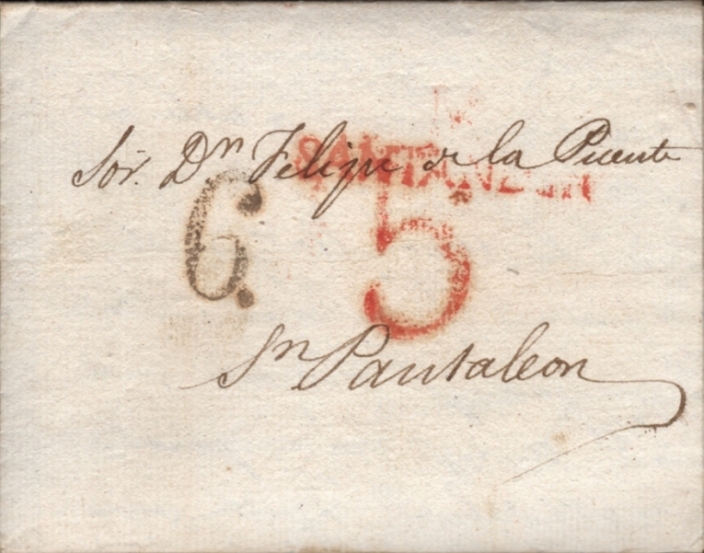 Sor. Dn Felipe de la Puente
SANTANDER
6. 5
Sn Pantaleon